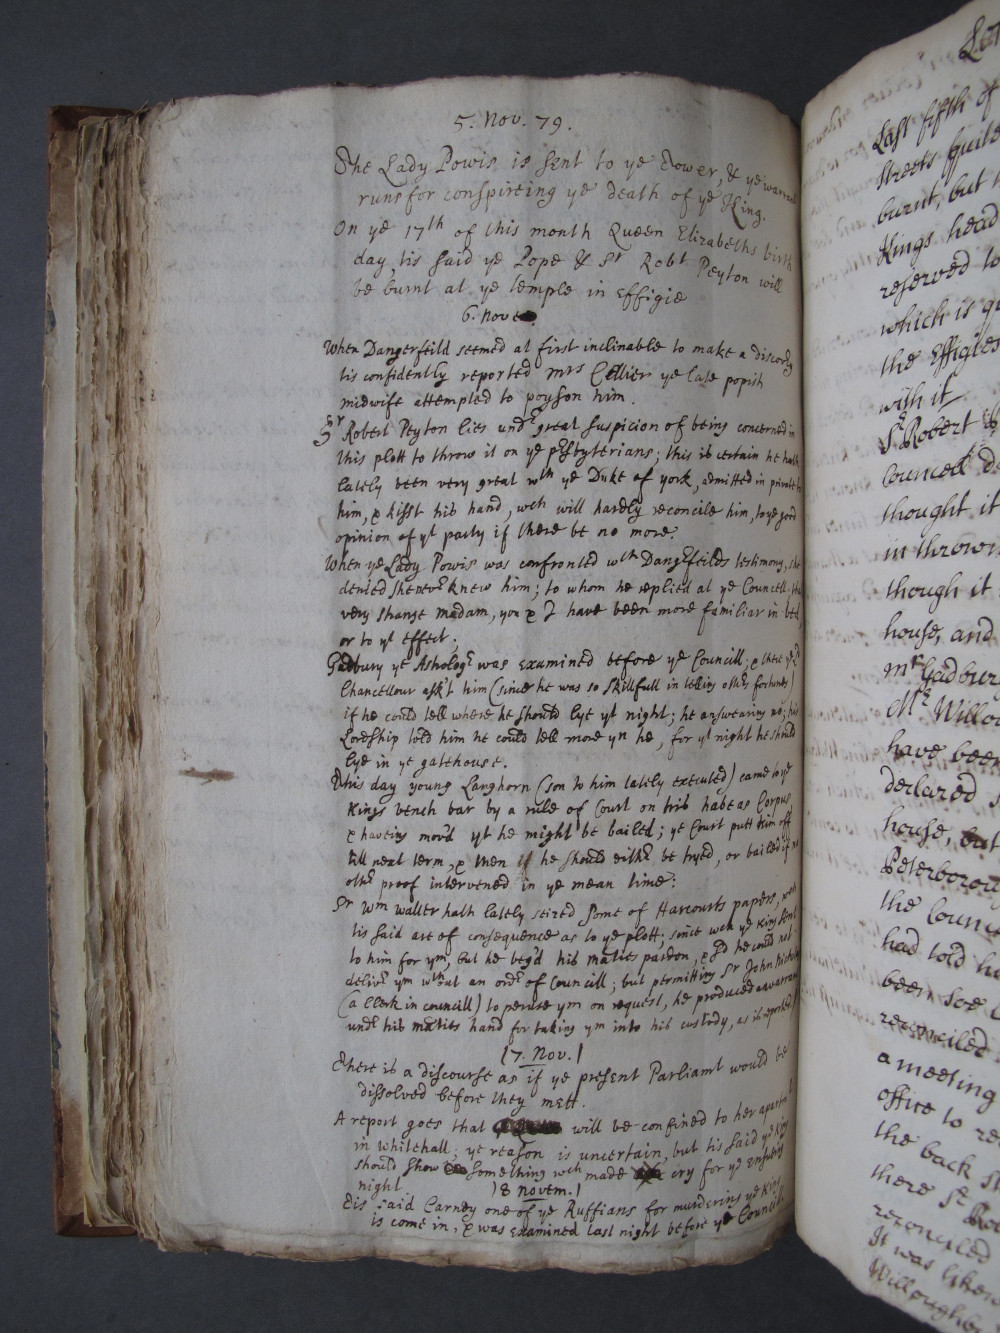 5. Nov. 79.
The Lady Powis is sent to ye Tower, & ye warrant
runs for conspireing ye death of ye King.
On ye 17th of this month Queen Elizabeths birth
day, tis said ye Pope & Sr Robt Peyton will
be burnt at ye temple in Effigie
6. Nove
When Dangerfeild seemed at first inclinable to make a discovry
tis confidently reported Mrs Cellier ye late popish
midwife attempted to poyson him.
Sr Robert Peyton lies undr great suspicion of being concerned in
this plott to throw it on ye prsbyterians; this is certain he hath
lately been very great wth ye Duke of york, admitted in private to
him, & kisst his hand, wch will hardly reconcile him, to ye good
opinion of yt party if there be no more.
When ye Lady Powis was confronted wth Dangrfeilds testimony, she
denied she nevr knew him; to whom he replied at ye Councell
very strange madam, you & I have been more familiar in bed,
or to yt effect;
Gadbury ye Astrologr was examined before ye Councill; & there ye Ld
Chancellour ask't him (since he was so skillfull in telling othrs fortunes)
if he could tell where he should lye yt night; he answearing no; his
Lordship told him he could tell more yn he, for yt night he should
lye in ye gatehouse.
This day young Langhorn (son to him lately executed) came to ye
Kings bench bar by a rule of Court on his habeas Corpus
& haveing mov'd yt he might be bailed; ye Court putt him off
till next term, & then if he should eithr be tryed, or bailed if no
othr proof intervened in ye mean time:
Sr Wm Waller hath lately seized some of Harcourts papers, wch
tis said are of consequence as to ye plott; since wch ye King sent
to him for ym, but he beg'd his maties pardon, & sd he could not
delivr ym wthout an ordr of Councill; but permitting Sr John Nicholas
(a Clerk in councill) to peruse ym on request, he produced a warrant
undr his maties hand for taking ym into his custody, as is reported
/7. Nov./
There is a discourse as if ye present Parliamt would be
dissolved before they mett.
A report goes that will be confined to her apartmt
in Whitehall; ye reason is uncertain, but tis said ye King
should show something wch made cry for ye ensueing
night
)8 Novem./
Tis said Carney one of ye Ruffians for murdering ye King
is come in, & was examined last night before ye Councill
Last fifth of
streets
burnt, but
Kings head
reserved to
which is
the Effigies
with it
Sr Robert
Councell
thought it
in throwin
though it
house, and
Mr Gadbury
Mr Willou
have been
declared
house, but
Peterborou
the Counc
had told h
been
reconciled
a meeting
office to re
the back st
there Sr Ro
reconciled
It was likew
Willoughby